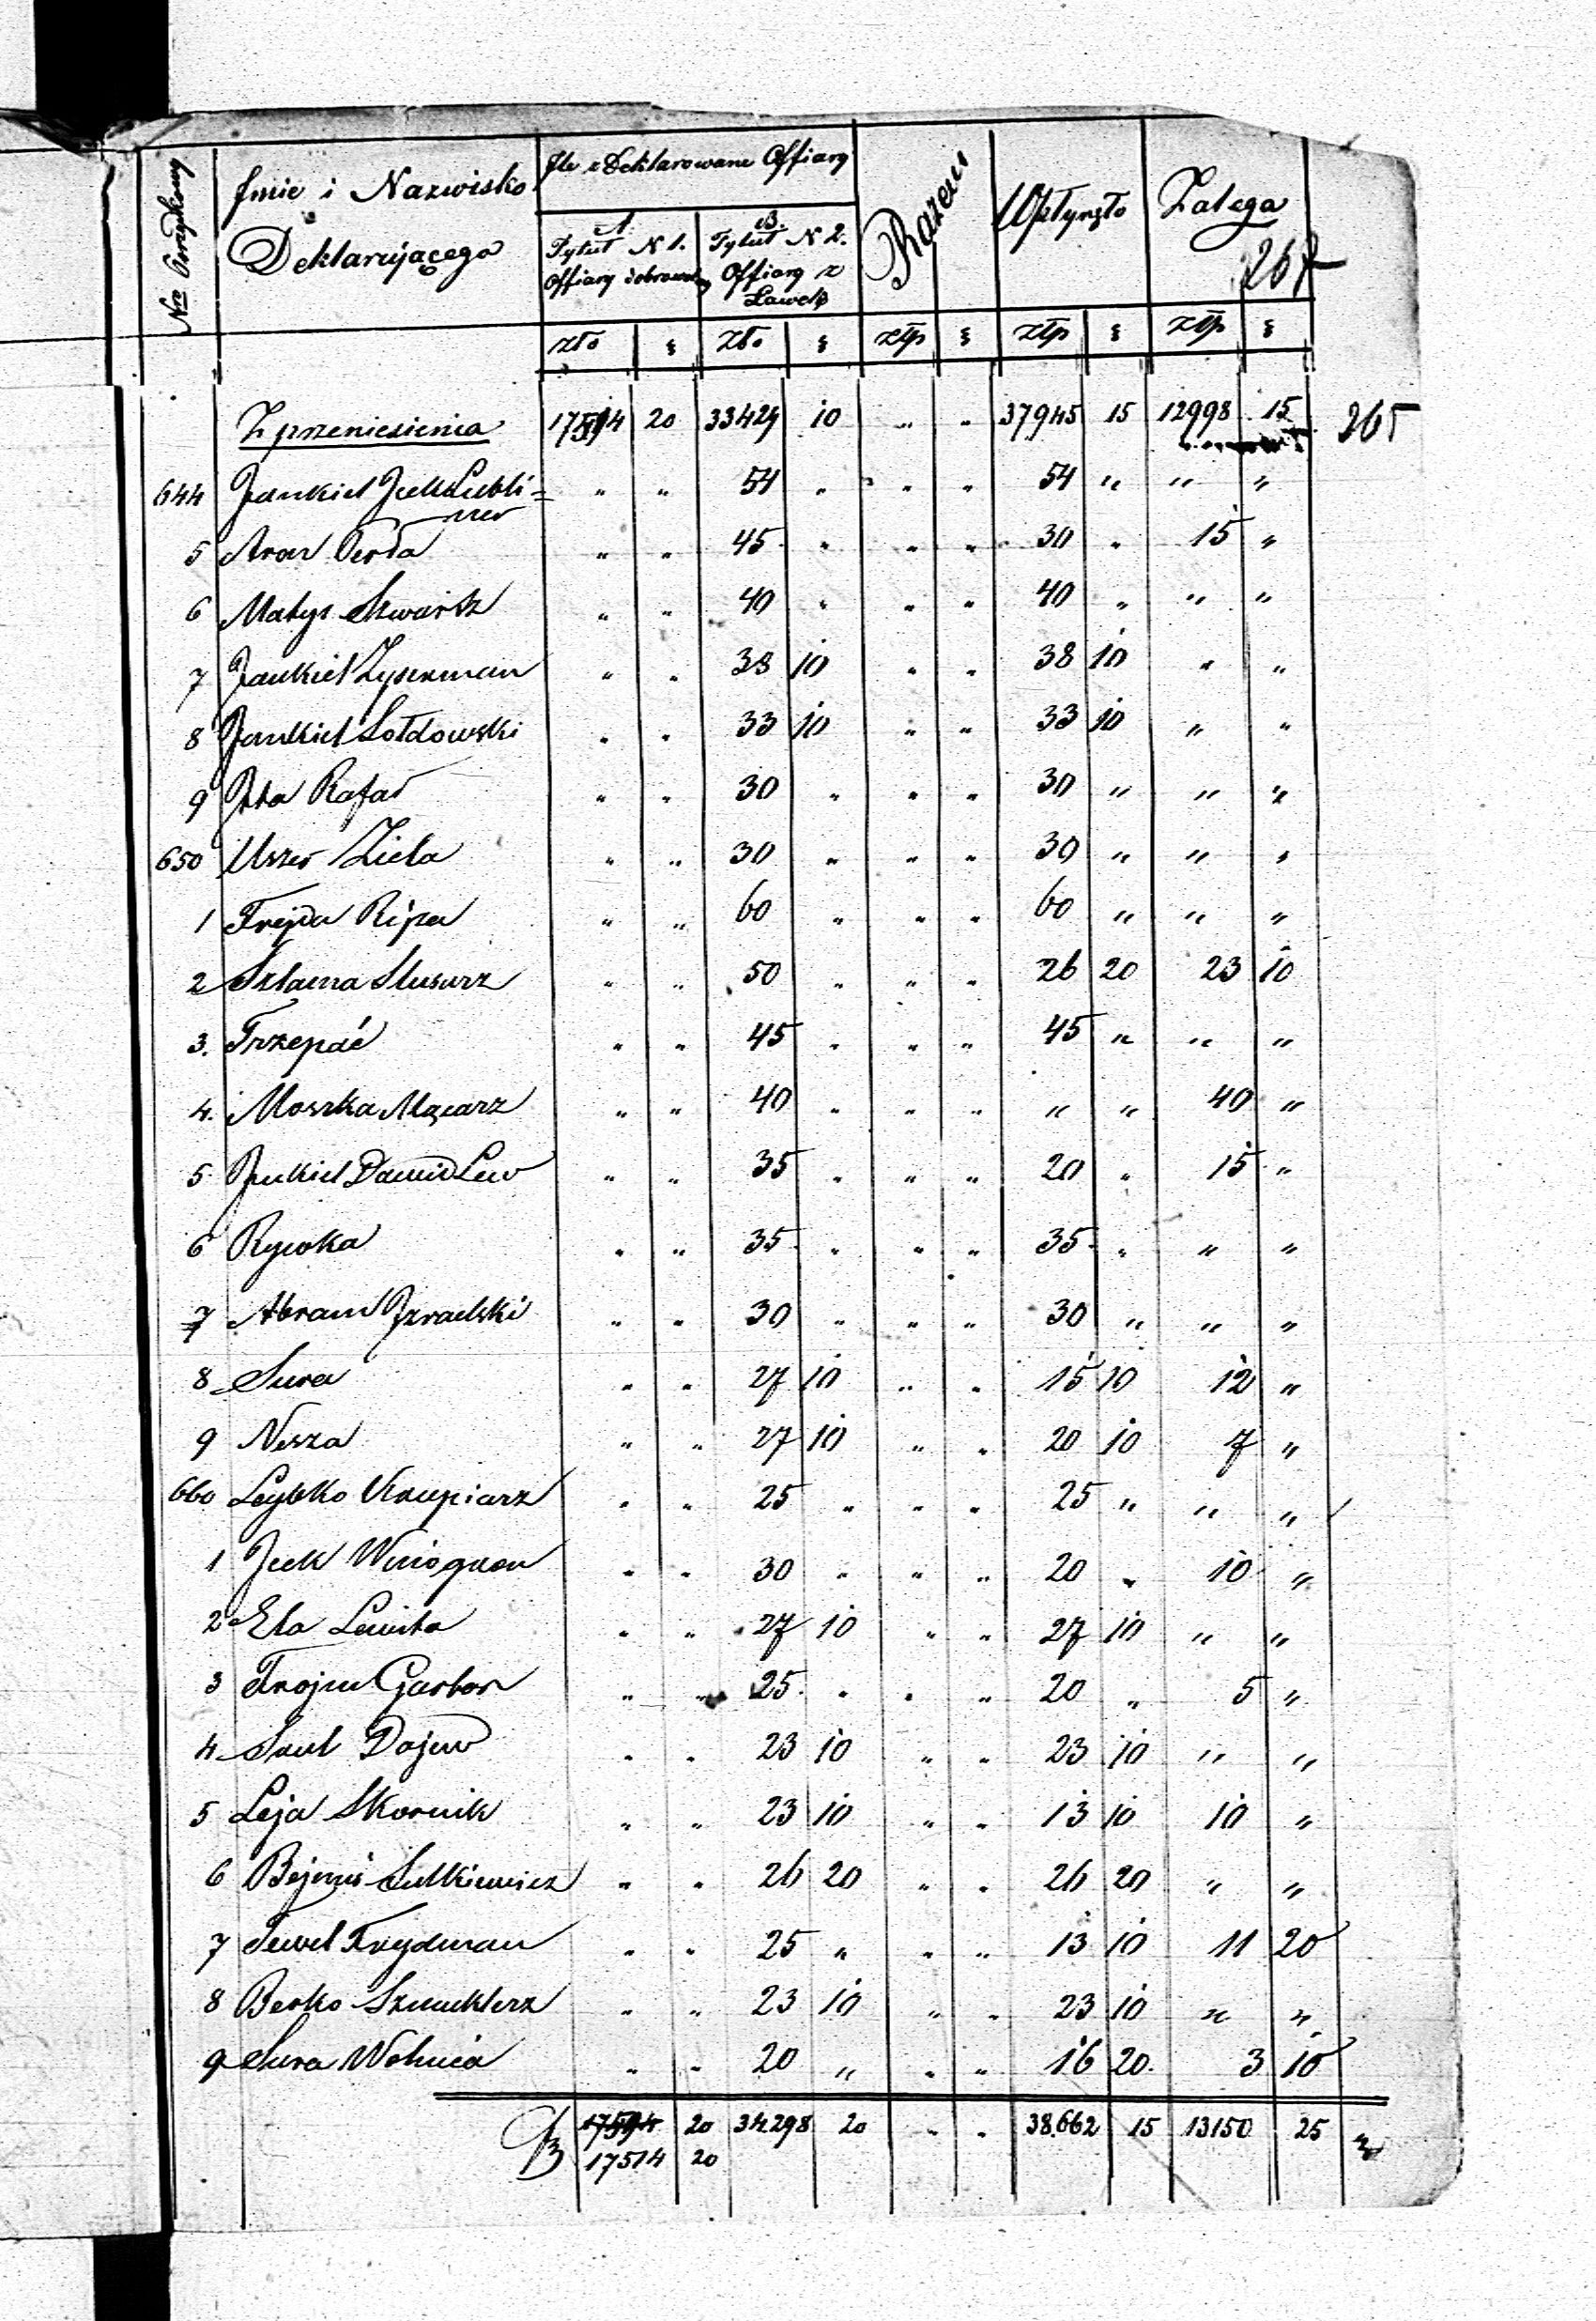 Nro Porządkowy
Imie i Nazwisko
Deklarującego
Ile zDeklarowane Offiary
A. Tytuł N 1. Offiary dobrowolny
B. Tytuł N 2. Offiary z Ławek
Razem
Wpłynęło
Zalega
267
złp złp złp złp złp
Z przeniesienia 17514 20 33424 10 " " 37945 15 12998 15
265
644 Jankiel Icek Lubli= " " 54 " " " 54 " " "
ner
5 Aron Perda " " 45 " " " 30 " 15 "
6 Matys Szwartz " " 40 " " " 40 " " "
7 Jankiel Zyserman " " 38 10 " " 38 10 " "
8 Jankiel Sołdowski " " 33 10 " " 33 10 " "
9 Ita Rafał " " 30 " " " 30 " " "
650 Uszer Ziela " " 30 " " " 30 " " "
1 Frejda Ripa " " 60 " " " 60 " " "
2 Szlama Slusarz " " 50 " " " 26 20 23 10
3. Trzepać " " 45 " " " 45 " " "
4. Moszka Mącarz " " 40 " " " " " 40 "
5 Jankiel Dawid Lew " " 35 " " " 20 " 15 "
6 Rywka " " 35 " " " 35 " " "
7 Abram Izraelski " " 30 " " " 30 " " "
8 Sura " " 27 10 " " 15 10 12 "
9 Nesza " " 27 10 " " 20 10 7 "
660 Leybko Krupiarz " " 25 " " " 25 " " "
1 Icek Winogron " " 30 " " " 20 " 10 "
2 Ela Lewita " " 27 10 " " 27 10 " "
3 Froim Garbor " " 25 " " " 20 " 5 "
4 Saul Dojew " " 23 10 " " 23 10 " "
5 Leja Skornik " " 23 10 " " 13 10 10 "
6 Sulkiewicz " " 26 20 " " 26 20 " "
7 Tewel Frydman " " 25 " " " 13 10 11 20
8 Berko Szmuklerz " " 23 10 " " 23 10 " "
9 Sura Wolnica " " 20 " " " 16 20 3 10
17594 20 34298 20 " " 38.662 15 13150 25
17514 20